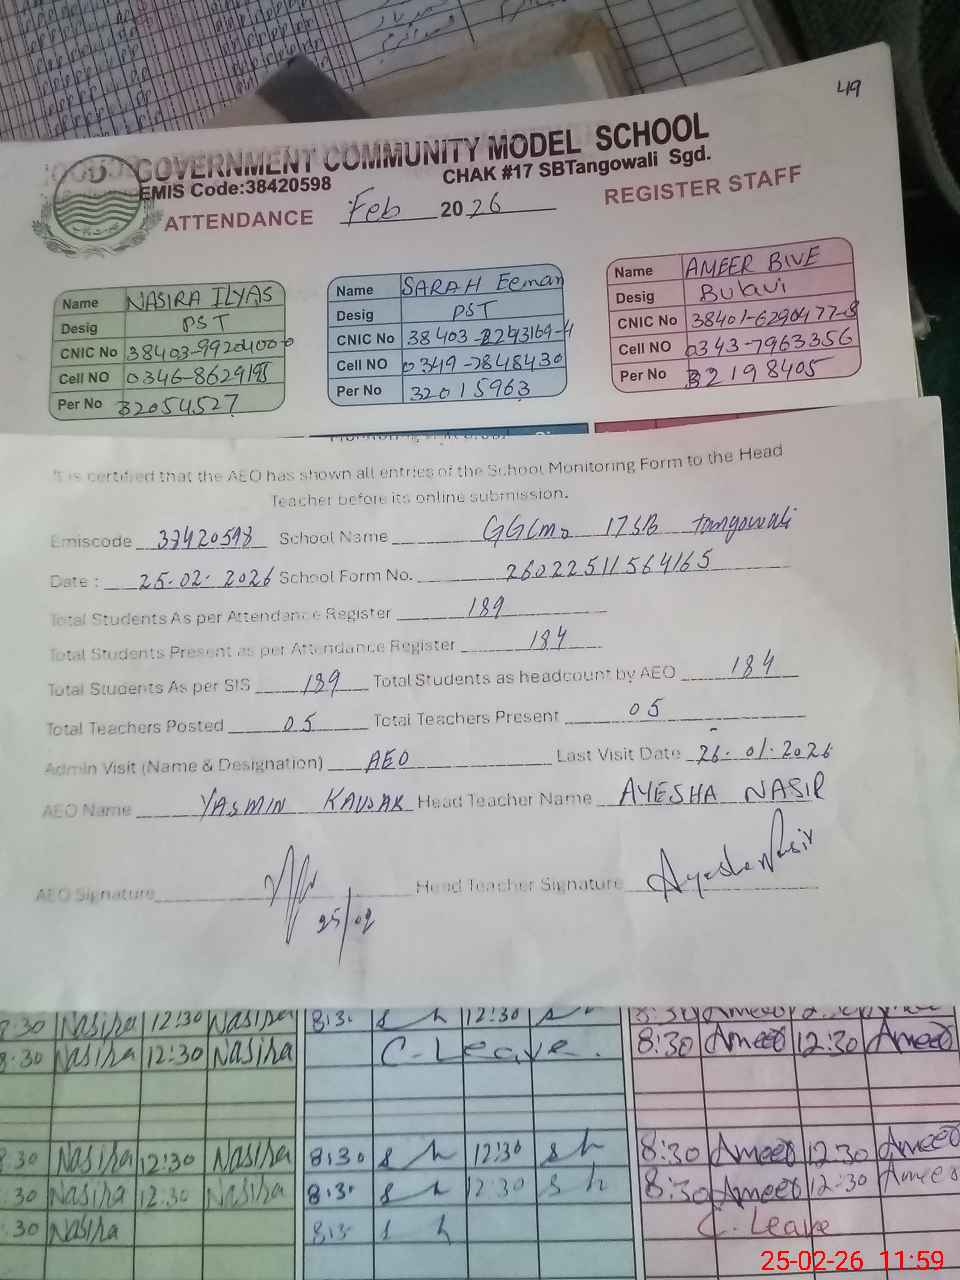 49
GOVERNMENT COMMUNITY MODEL SCHOOL
EMIS Code:38420598
CHAK #17 SBTangowali Sgd.
ATTENDANCE Feb 2026 REGISTER STAFF
Name NASIRA ILYAS
Desig PST
CNIC No 38403-9920400-0
Cell NO 0346-8629195
Per No 32054527
Name SARAH Eeman
Desig PST
CNIC No 38403-8293169-4
Cell NO 0349-7848430
Per No 32015963
Name AMEER BIVE
Desig Bulavi
CNIC No 38401-6290477-8
Cell NO 0343-7963356
Per No 32198405
It is certified that the AEO has shown all entries of the School Monitoring Form to the Head
Teacher before its online submission.
Emiscode 38420598 School Name GGCMS 17SB tangowali
Date : 25-02-2026 School Form No. 26022511564165
Total Students As per Attendance Register 189
Total Students Present as per Attendance Register 184
Total Students As per SIS 189 Total Students as headcount by AEO 184
Total Teachers Posted 05 Total Teachers Present 05
Admin Visit (Name & Designation) AEO Last Visit Date 26-01-2026
AEO Name YASMIN KAUSAR Head Teacher Name AYESHA NASIR
AEO Signature Head Teacher Signature Ayesha Nasir
25/02
8:30 Nasira 12:30 Nasira 8:3- s h 12:30 s h 8:30 Ameer
8:30 Nasira 12:30 Nasira C. Leave. 8:30 Ameer 12:30 Ameer
30 Nasira 12:30 Nasira 8:30 s h 12:30 s h 8:30 Ameer 12:30 Ameer
30 Nasira 12:30 Nasira 8:3- s h 12:30 s h 8:30 Ameer 12:30 Ameer
30 Nasira 8:3- s h C. Leave
25-02-26 11:59